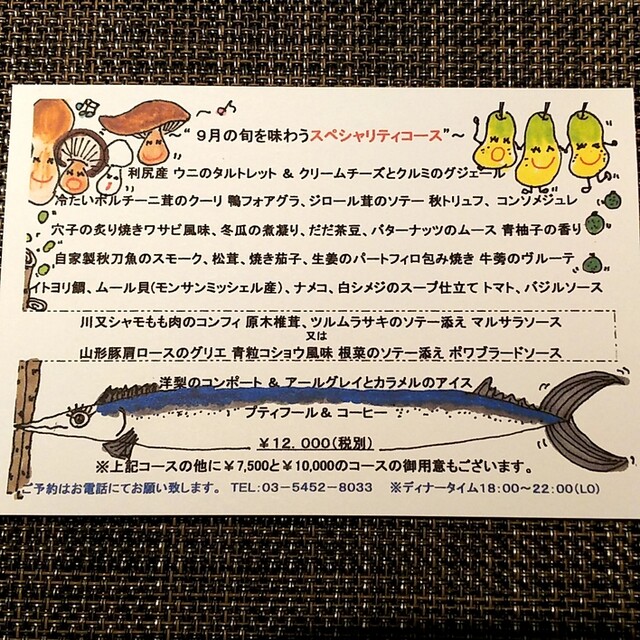 ～“９月の旬を味わうスペシャリティコース”～
利尻産 ウニのタルトレット ＆ クリームチーズとクルミのグジェール
冷たいポルチーニ茸のクーリ 鴨フォアグラ、ジロール茸のソテー 秋トリュフ、コンソメジュレ
穴子の炙り焼きワサビ風味、冬瓜の煮凝り、だだ茶豆、バターナッツのムース 青柚子の香り
自家製秋刀魚のスモーク、松茸、焼き茄子、生姜のパートフィロ包み焼き 牛蒡のヴルーテ
イトヨリ鯛、ムール貝(モンサンミッシェル産)、ナメコ、白シメジのスープ仕立て トマト、バジルソース
川又シャモもも肉のコンフィ 原木椎茸、ツルムラサキのソテー添え マルサラソース
又は
山形豚肩ロースのグリエ 青粒コショウ風味 根菜のソテー添え ポワブラードソース
洋梨のコンポート ＆ アールグレイとカラメルのアイス
プティフール＆ コーヒー
￥１２．０００(税別)
※上記コースの他に￥7,500と￥10,000のコースの御用意もございます。
ご予約はお電話にてお願い致します。 TEL:03-5452-8033 ※ディナータイム18:00～22:00(LO)